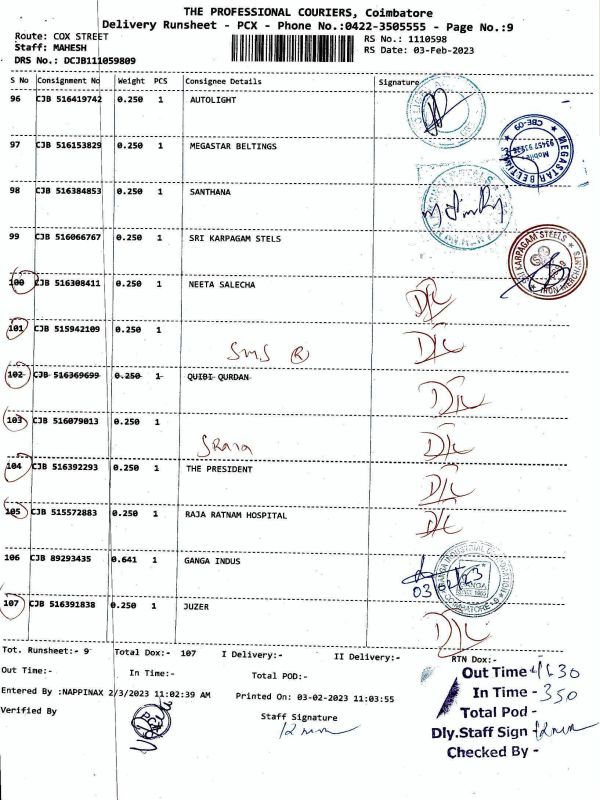 THE PROFESSIONAL COURIERS, Coimbatore
Delivery Runsheet - PCX - Phone No.:0422-3505555 - Page No.:9
Route: COX STREET
RS No.: 1110598
Staff: MAHESH
RS Date: 03-Feb-2023
DRS No.: DCJB111059809
S No Consignment No Weight PCS Consignee Details Signature
96 CJB 516419742 0.250 1 AUTOLIGHT
97 CJB 516153829 0.250 1 MEGASTAR BELTINGS
MEGASTAR BELTINGS
CBE-09
Mobile
98 CJB 516384853 0.250 1 SANTHANA
99 CJB 516066767 0.250 1 SRI KARPAGAM STELS
SRI KARPAGAM STEELS
IRON MERCHANTS
100 CJB 516308411 0.250 1 NEETA SALECHA
D/L
101 CJB 515942109 0.250 1
D/L
SMS R
102 CJB 516369699 0.250 1 QUIBI QURDAN
D/L
103 CJB 516079013 0.250 1
D/L
104 CJB 516392293 0.250 1 THE PRESIDENT
D/L
105 CJB 515572883 0.250 1 RAJA RATNAM HOSPITAL
D/L
106 CJB 89293435 0.641 1 GANGA INDUS
COIMBATORE
107 CJB 516391838 0.250 1 JUZER
D/L
Tot. Runsheet:- 9 Total Dox:- 107 I Delivery:- II Delivery:- RTN Dox:-
Out Time:- In Time:- Total POD:-
Entered By :NAPPINAX 2/3/2023 11:02:39 AM Printed On: 03-02-2023 11:03:55
Verified By
Staff Signature
Out Time - 11.30
In Time - 350
Total Pod -
Dly.Staff Sign -
Checked By -